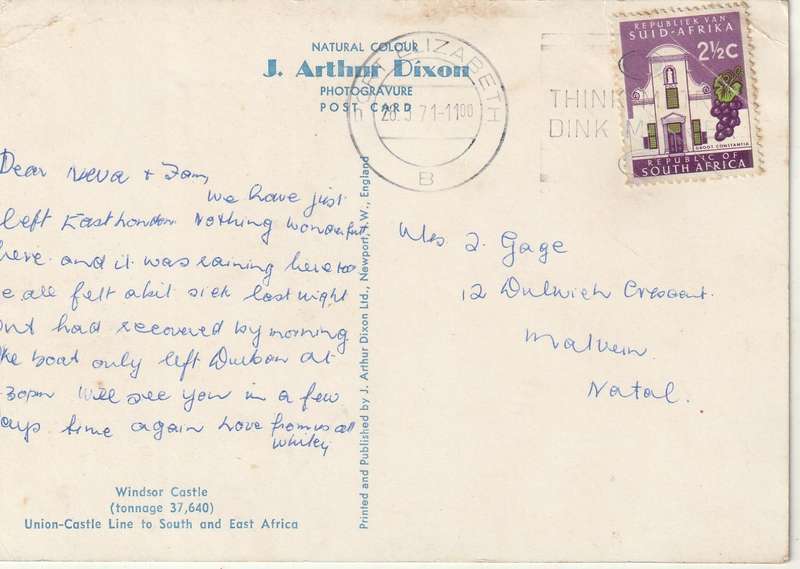 NATURAL COLOUR
J. Arthur Dixon
PHOTOGRAVURE
POST CARD
PORT ELIZABETH
71-1100
B
THINK
DINK
REPUBLIEK VAN
SUID-AFRIKA
2½C
GROOT CONSTANTIA
REPUBLIC OF
SOUTH AFRICA
Dear Neva + Fam,
we have just
left East London Nothing wonderfull
here and it was raining here too
we all felt abit sick last night
but had recovered by morning
The boat only left Durban at
30pm Will see you in a few
days time again Love from us all
Whiley
Windsor Castle
(tonnage 37,640)
Union-Castle Line to South and East Africa
Printed and Published by J. Arthur Dixon Ltd., Newport, I.W., England
Mrs J. Gage
12 Dulwich Crescent.
Malvern.
Natal.